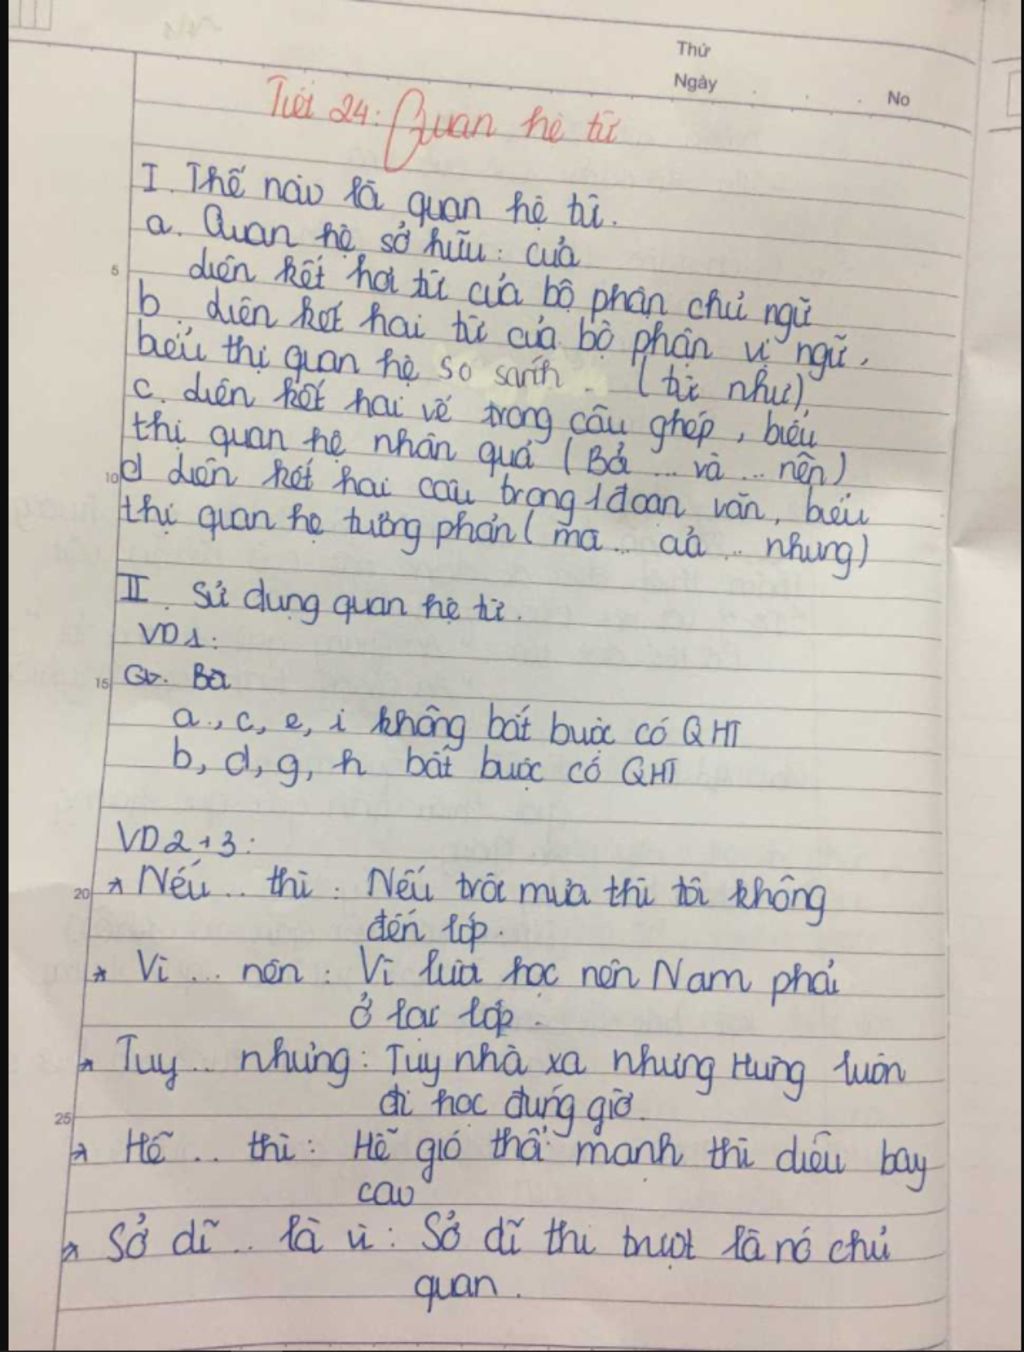 Thứ
Ngày
No
Tiết 24: Quan hệ từ
I. Thế nào là quan hệ từ.
a. Quan hệ sở hữu: của
5
diên kết hai từ của bộ phận chủ ngữ
b. diên kết hai từ của bộ phận vị ngữ,
biểu thị quan hệ so sánh. (từ như)
c. diên kết hai vế trong câu ghép, biểu
thị quan hệ nhân quả (Bởi ... và ... nên)
10
d diên kết hai câu trong 1 đoạn văn, biểu
thị quan hệ tương phản (mà ... ... nhưng)
II. Sử dụng quan hệ từ.
VD1:
15
a, c, e, i không bắt buộc có QHT
b, d, g, h bắt buộc có QHT
VD2+3:
20
* Nếu .. thì : Nếu trời mưa thì tôi không
đến lớp.
* Vì ... nên : Vì lười học nên Nam phải
ở lại lớp.
* Tuy .. nhưng : Tuy nhà xa nhưng Hưng luôn
đi học đúng giờ.
25
* Hễ .. thì : Hễ gió thổi mạnh thì diều bay
cao
* Sở dĩ .. là vì : Sở dĩ thi trượt là nó chủ
quan.